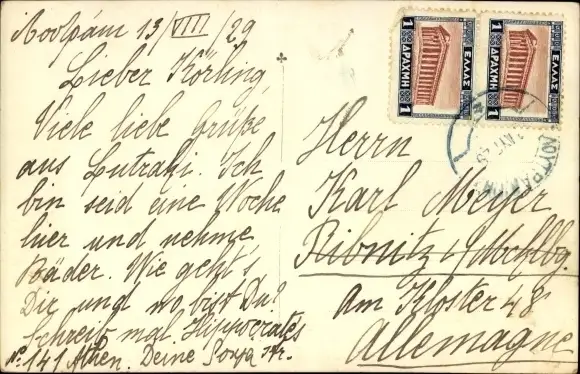 Λουτράκι 13/VIII/29
Lieber Körling,
Viele liebe Grüße
aus Lutraki. Ich
bin seid eine Woche
hier und nehme
Bäder. Wie geht's
Dir und wo bist Du?
Schreib mal. Hippocrates
No. 141 Athen. Deine Sonja
Herrn
Karl Meyer
Ribnitz i/Mecklbg.
Am Kloster 48
Allemagne
ΕΛΛΑΣ
1 ΔΡΑΧΜΗ 1
ΕΛΛΑΣ
1 ΔΡΑΧΜΗ 1